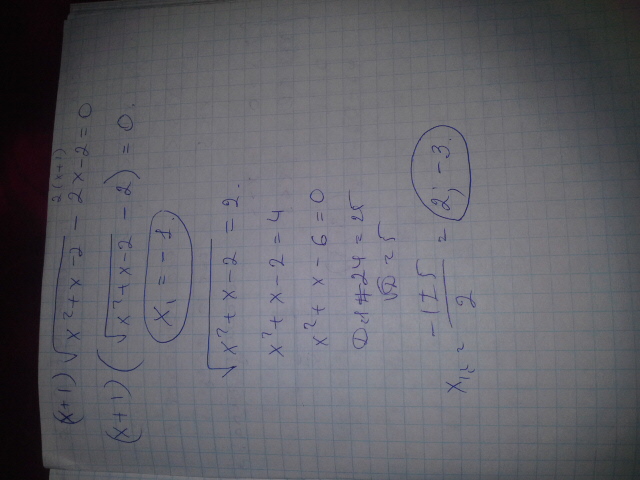 (x+1)√(x²+x-2) - 2x-2=0
2(x+1)
(x+1)(√(x²+x-2) - 2) = 0.
x₁ = -1.
√(x²+x-2) = 2.
x²+x-2=4
x²+x-6=0
D=1+24=25
√D=5
x₁,₂ = (-1±5)/2 = 2; -3.